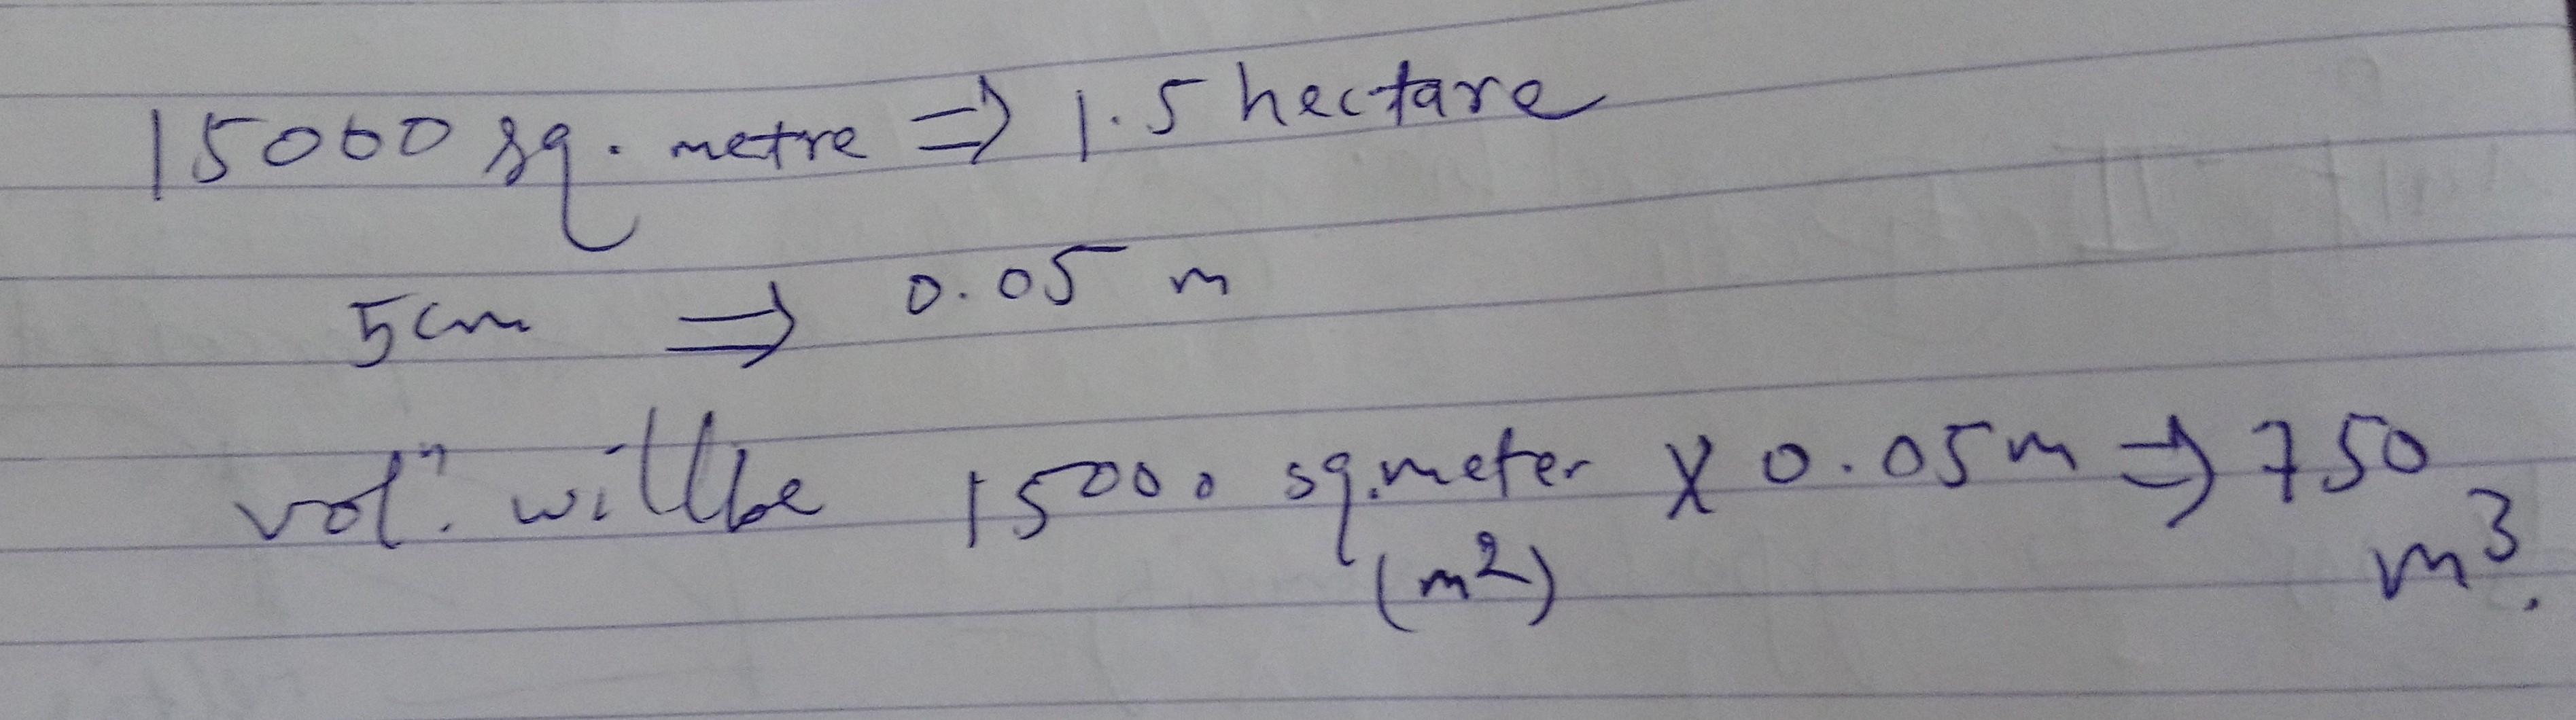 15000 sq. metre ⇒ 1.5 hectare
5cm ⇒ 0.05 m
volⁿ. will be 15000 sq.meter X 0.05m ⇒ 750
(m²) m³.